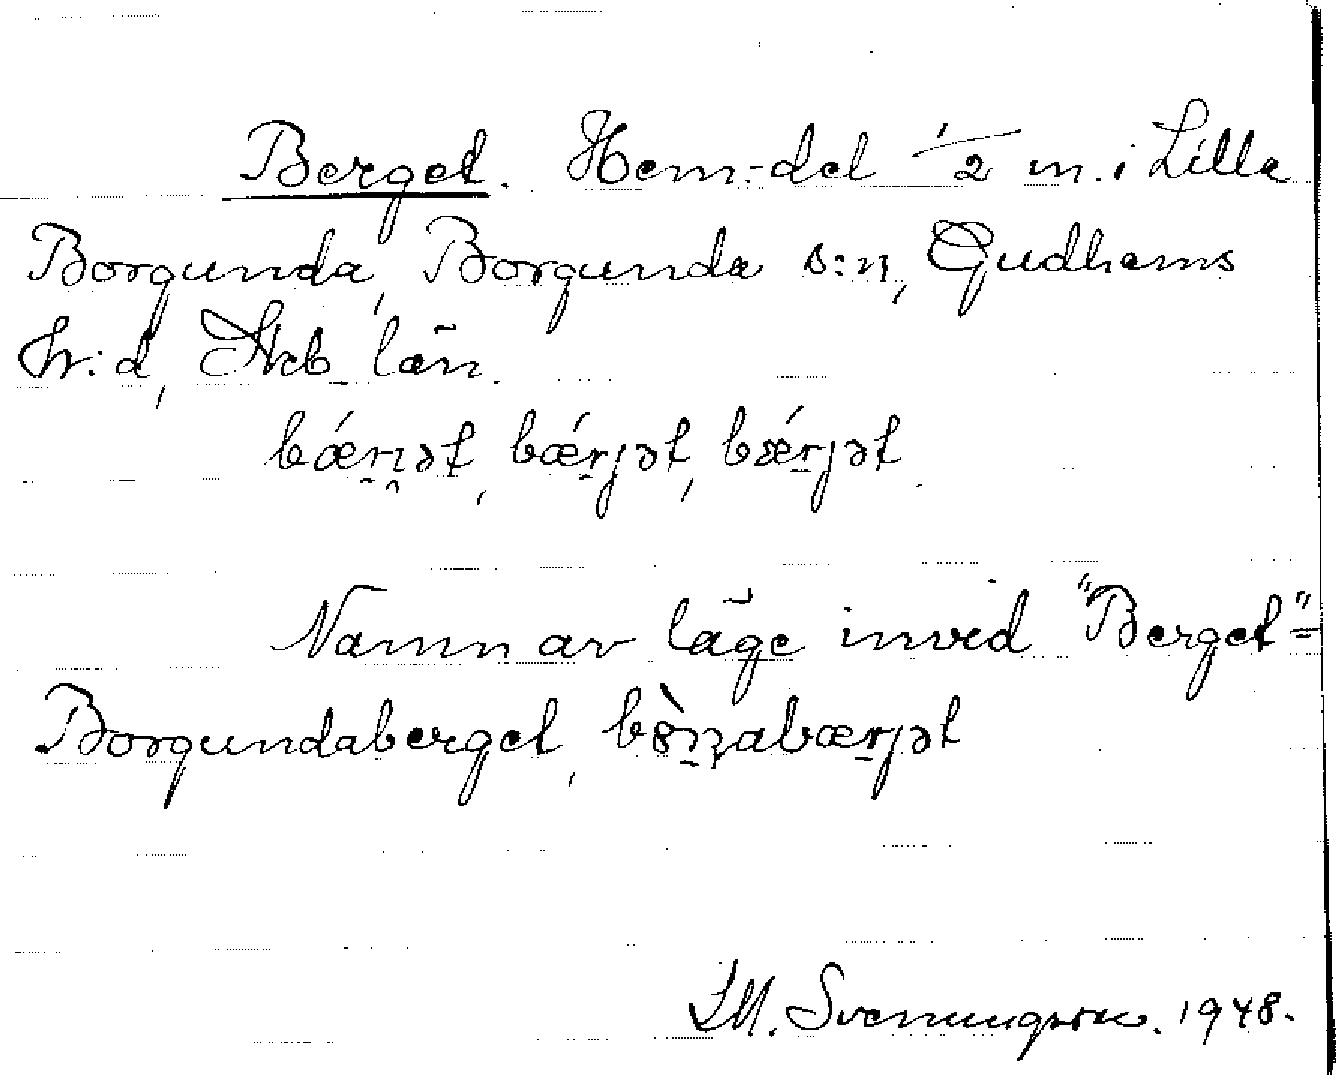 Berget. Hem:del 1/2 m. i Lilla
Borgunda, Borgunda s:n, Gudhems
hr:d, Skb län.
bǽrjət, bǽrjət,
Namn av läge invid "Berget"=
Borgundaberget,
Svenungsson. 1948.